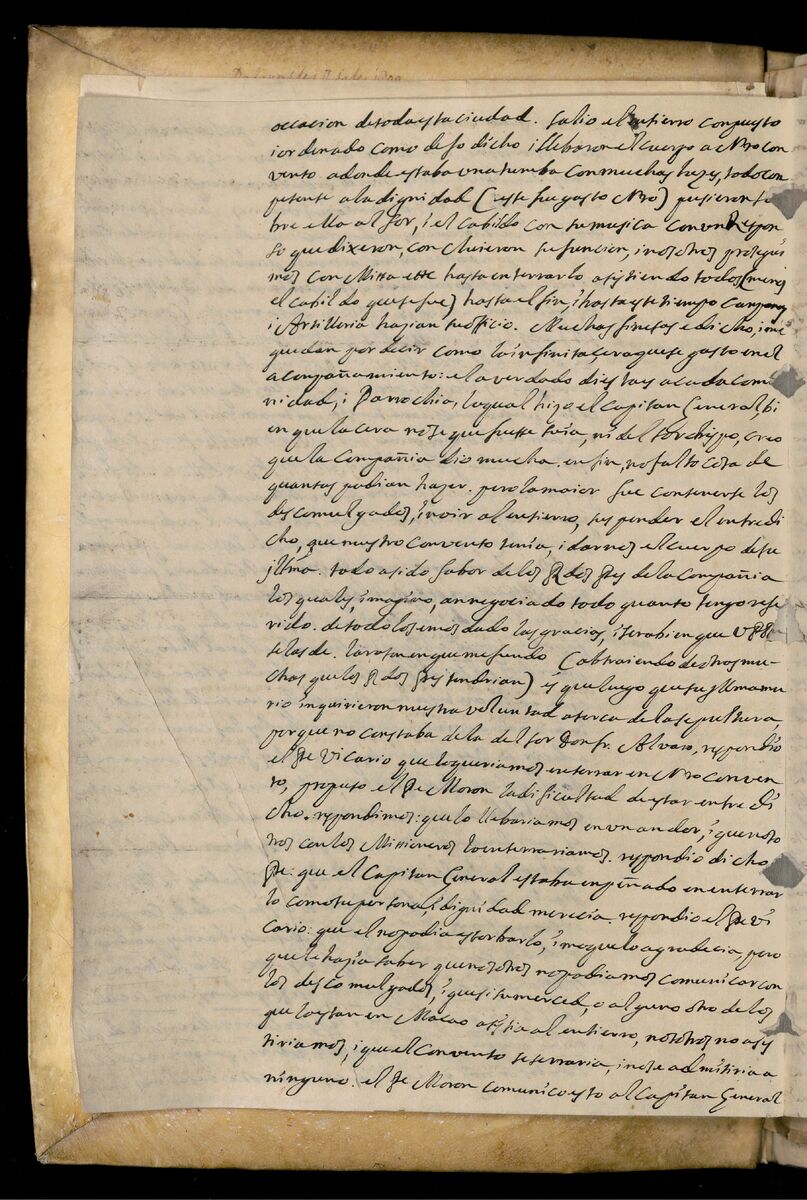 occacion de toda esta ciudad. salio el entierro conpuesto
i ordenado como dejo dicho i llebaron el cuerpo a Nro con
vento adonde estaba una tumba con muchas luzes, todo con
petente a la dignidad (este fue gasto Nro) pusieron so
bre ella al Sor, i el cabildo con su musica con un Respon
so que dixeron, concluieron su funcion, i nosotros prosegui
mos con Missa ettc hasta enterrarlo asistiendo todos (menos
el cabildo que se fue) hasta el fin, i hasta este tiempo canpanas
i Artilleria hazian su officio. Muchas finesas e dicho, i me
quedan por decir como la infinita cera que se gasto en el
aconpañamiento: el aver dado dies taes a cada comu
nidad, i Parrochia, lo qual hizo el Capitan General, bi
en que la cera no se que fuesse suia, ni del Sor obispo, creo
que la Compañia dio mucha. en fin, no falto cosa de
quantas podian hazer. pero la maior fue contenerse los
descomulgados, i no ir al entierro, suspender el entredi
cho, que nuestro convento tenia, i darnos el cuerpo de su
Illma. todo a sido fabor de los RRdos PPes de la Compañia
los quales, imagino, an negociado todo quanto tengo refe
rido. de todo les emos dado las gracias, i sera bien que V
se las de. la rason en que me fundo (abtraiendo de otras mu-
chas que los RRdos PPes tendrian) es que luego que su Illma mu
rio inquirieron nuestra voluntad aserca de la sepultura,
porque no constaba de la del Sor Don fr. Alvaro, respondio
el Pe Vicario que lo queriamos enterrar en Nro conven
to, propuso el Pe Moron la dificultad de estar entredi
cho. respondimos: que lo llebariamos en un andor, i que noso
tros con los Missioneros lo enterrariamos. respondio dicho
Pe: que el Capitan General estaba enpeñado en enterrar
lo como su persona, i dignidad merecia. respondio el Pe Vi
cario: que el no podia estorbarlo, i mas que lo agradecia, pero
que le hazia saber que nosotros no podiamos comunicar con
los descomulgados, i que si su merced, o alguno otro de los
que lo estan en Macao asistia al entierro, nosotros no asis
tiriamos, i que el Convento se serraria, i no se admitiria a
ninguno. el Pe Moron comunico esto al Capitan General